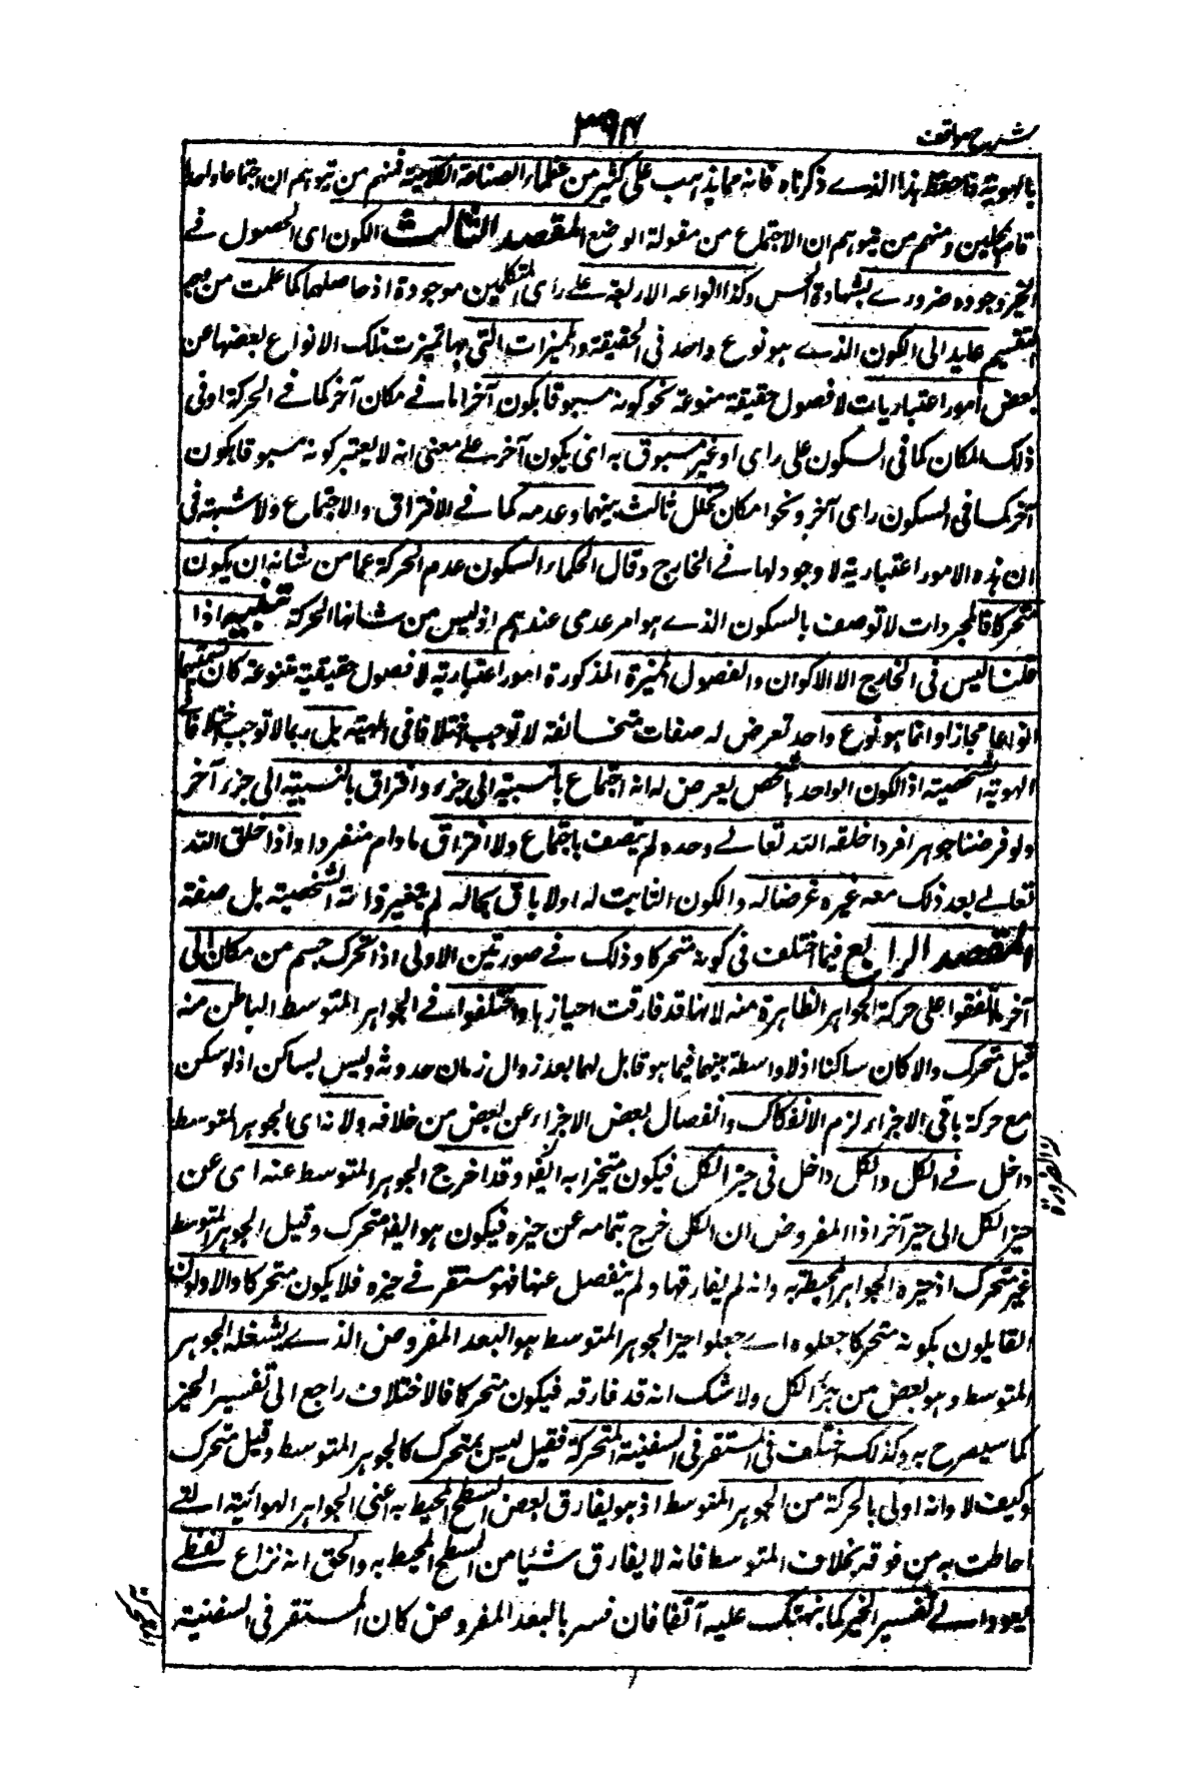 شرح مواقف
٣٩٤
بالهوية فاحفظ هذا الذي ذكرناه فانه مما يذهب على كثير من عظماء الصناعة الكلامية فمنهم من يتوهم ان اجتماعا واحدا
قائم بمحلين ومنهم من يتوهم ان الاجتماع من مقولة الوضع المقصد الثالث الكون اى الحصول في
الحيز وجوده ضروري بشهادة الحس وكذا انواعه الاربعة على راى المتكلمين موجودة اذ حاصلها كما علمت من وجه
التقسيم عايد الى الكون الذي هو نوع واحد فى الحقيقة والمميزات التى بها تميزت تلك الانواع بعضها عن
بعض امور اعتباريات لا فصول حقيقة منوعة نحو كونه مسبوقا بكون آخر اما في مكان آخر كما في الحركة او فى
ذلك المكان كما فى السكون على راى او غير مسبوق به اى بكون آخر على معنى انه لا يعتبر كونه مسبوقا بكون
آخر كما فى السكون راى آخر ونحو امكان تخلل ثالث بينهما وعدمه كما في الافتراق والاجتماع ولا شبهة فى
ان هذه الامور اعتبارية لا وجود لها في الخارج وقال الحكماء السكون عدم الحركة عما من شانه ان يكون
متحركا فالمجردات لا توصف بالسكون الذي هو امر عدمى عندهم اذ ليس من شانها الحركة تنبيه اذا
قلنا ليس فى الخارج الا الاكوان والفصول المميزة المذكورة امور اعتبارية لا فصول حقيقية متنوعة كان تسميتها
انواعا مجازا وانما هو نوع واحد تعرض له صفات متخالفة لا توجب اختلافا فى المهية بل ربما لا توجب اختلافا في
الهوية الشخصية اذ الكون الواحد بالشخص يعرض له انه اجتماع بالنسبة الى جزء وافتراق بالنسبة الى جزء آخر
ولو فرضنا جوهرا فردا خلقه الله تعالى وحده لم يتصف باجتماع ولا افتراق ما دام منفردا واذا خلق الله
تعالى بعد ذلك معه غيره عرضا له والكون الثابت له اولا باق بحاله لم يتغير ذاته الشخصية بل صفته
المقصد الرابع فيما اختلف فى كونه متحركا وذلك في صورتين الاولى اذا تحرك جسم من مكان الى
آخر فاتفقوا على حركة الجواهر الظاهرة منه لانها قد فارقت احيازها واختلفوا في الجواهر المتوسط الباطن منه
فقيل متحرك والا كان ساكنا اذ لا واسطة بينهما فيما هو قابل لهما بعد زوال زمان حدوثه وليس بساكن اذ لو سكن
مع حركة باقى الاجزاء لزم الانفكاك وانفصال بعض الاجزاء عن بعض من خلافه ولانه اى الجوهر المتوسط
داخل في الكل والكل داخل فى حيز الكل فيكون متحيزا به ايضا وقد اخرج الجوهر المتوسط عنه اى عن
حيز الكل الى حيز آخر اذ المفروض ان الكل خرج بتمامه عن حيزه فيكون هو ايضا متحرك وقيل الجوهر المتوسط
غير متحرك اذ حيزه الجواهر المحيطة به وانه لم يفارقها ولم ينفصل عنها فهو مستقر في حيزه فلا يكون متحركا والاولون
القايلون بكونه متحركا جعلوه اي جعلوا حيز الجوهر المتوسط هو البعد المفروض الذي يشغله الجوهر
المتوسط وهو بعض من حيز الكل ولا شك انه قد فارقه فيكون متحركا فالاختلاف راجع الى تفسير الحيز
كما سيصرح به وكذلك اختلف فى المستقر فى السفينة المتحركة فقيل ليس بمتحرك كالجوهر المتوسط وقيل متحرك
وكيف لا وانه اولى بالحركة من الجوهر المتوسط اذ هو يفارق بعض السطح المحيط به اعنى الجواهر الهوائية التي
احاطت به من فوقه بخلاف المتوسط فانه لا يفارق شئيا من السطح المحيط به والحق انه نزاع لفظي
يعود الى تفسير الحيز كما نبهتك عليه آنفا فان فسر بالبعد المفروض كان المستقر فى السفينة